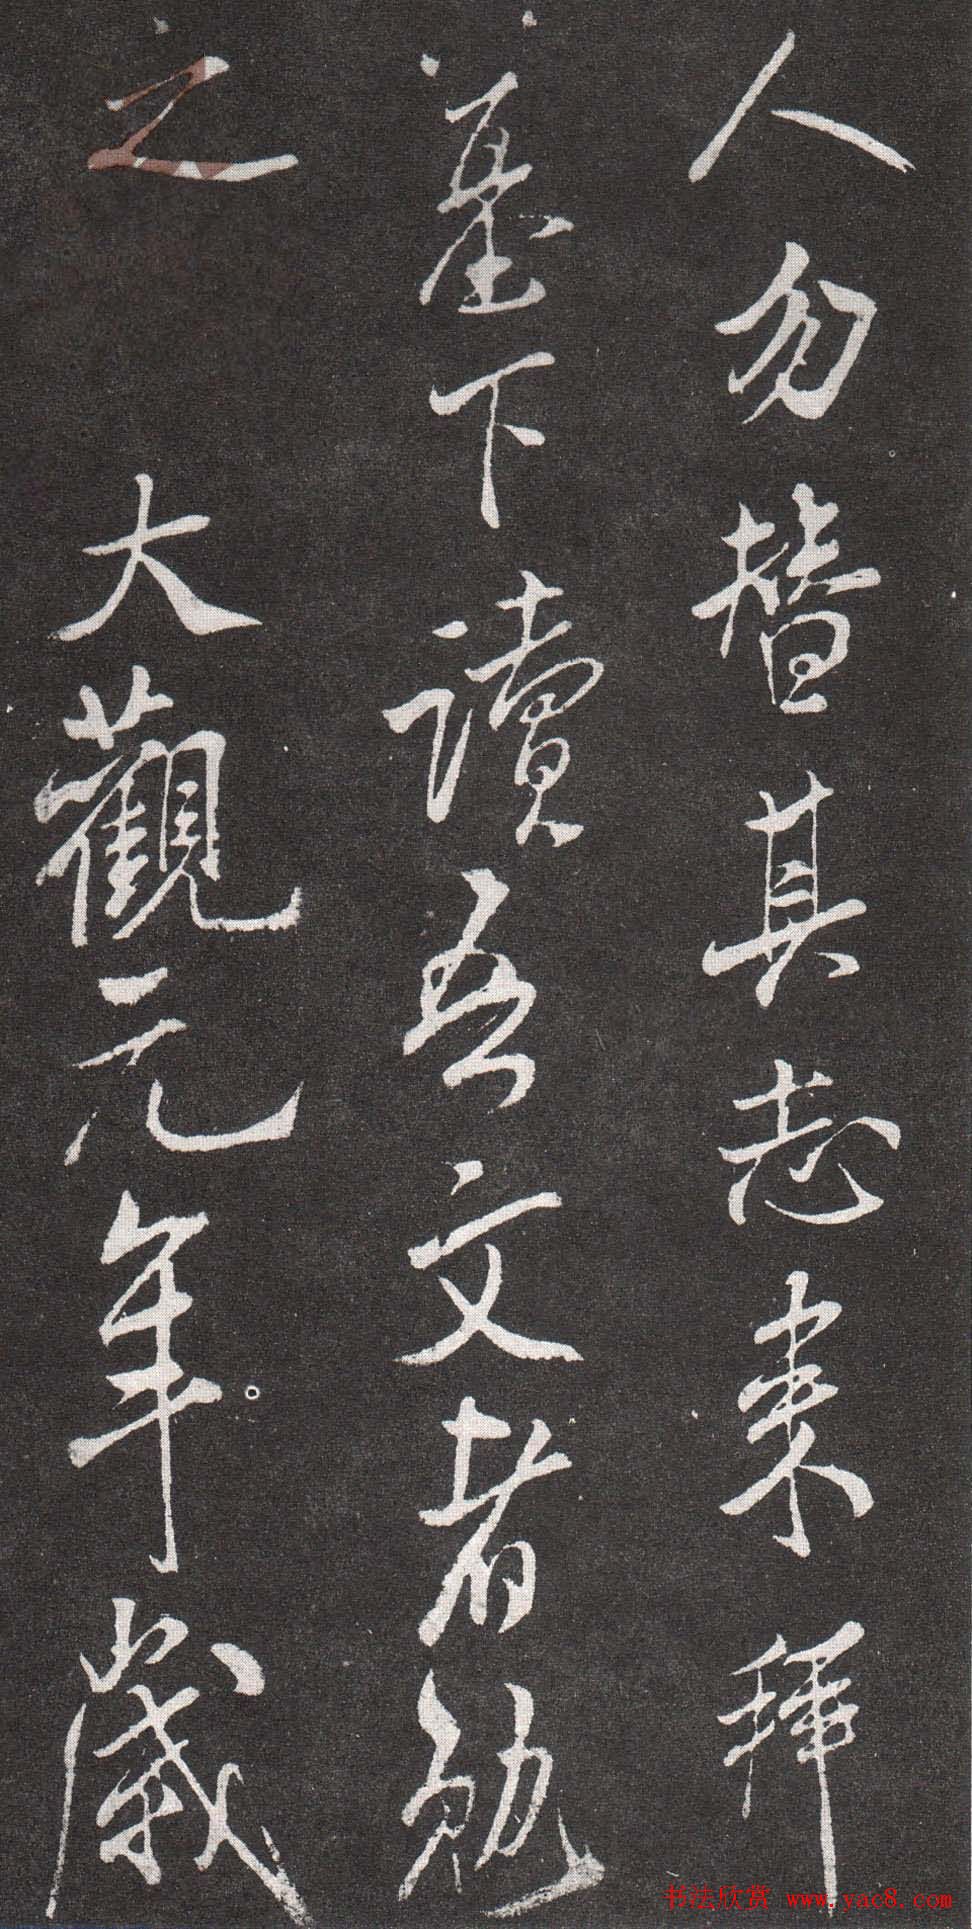 人勿替其志来拜
墓下读吾文者勉
之
大觀元年歲
书法欣赏 www.yac8.com